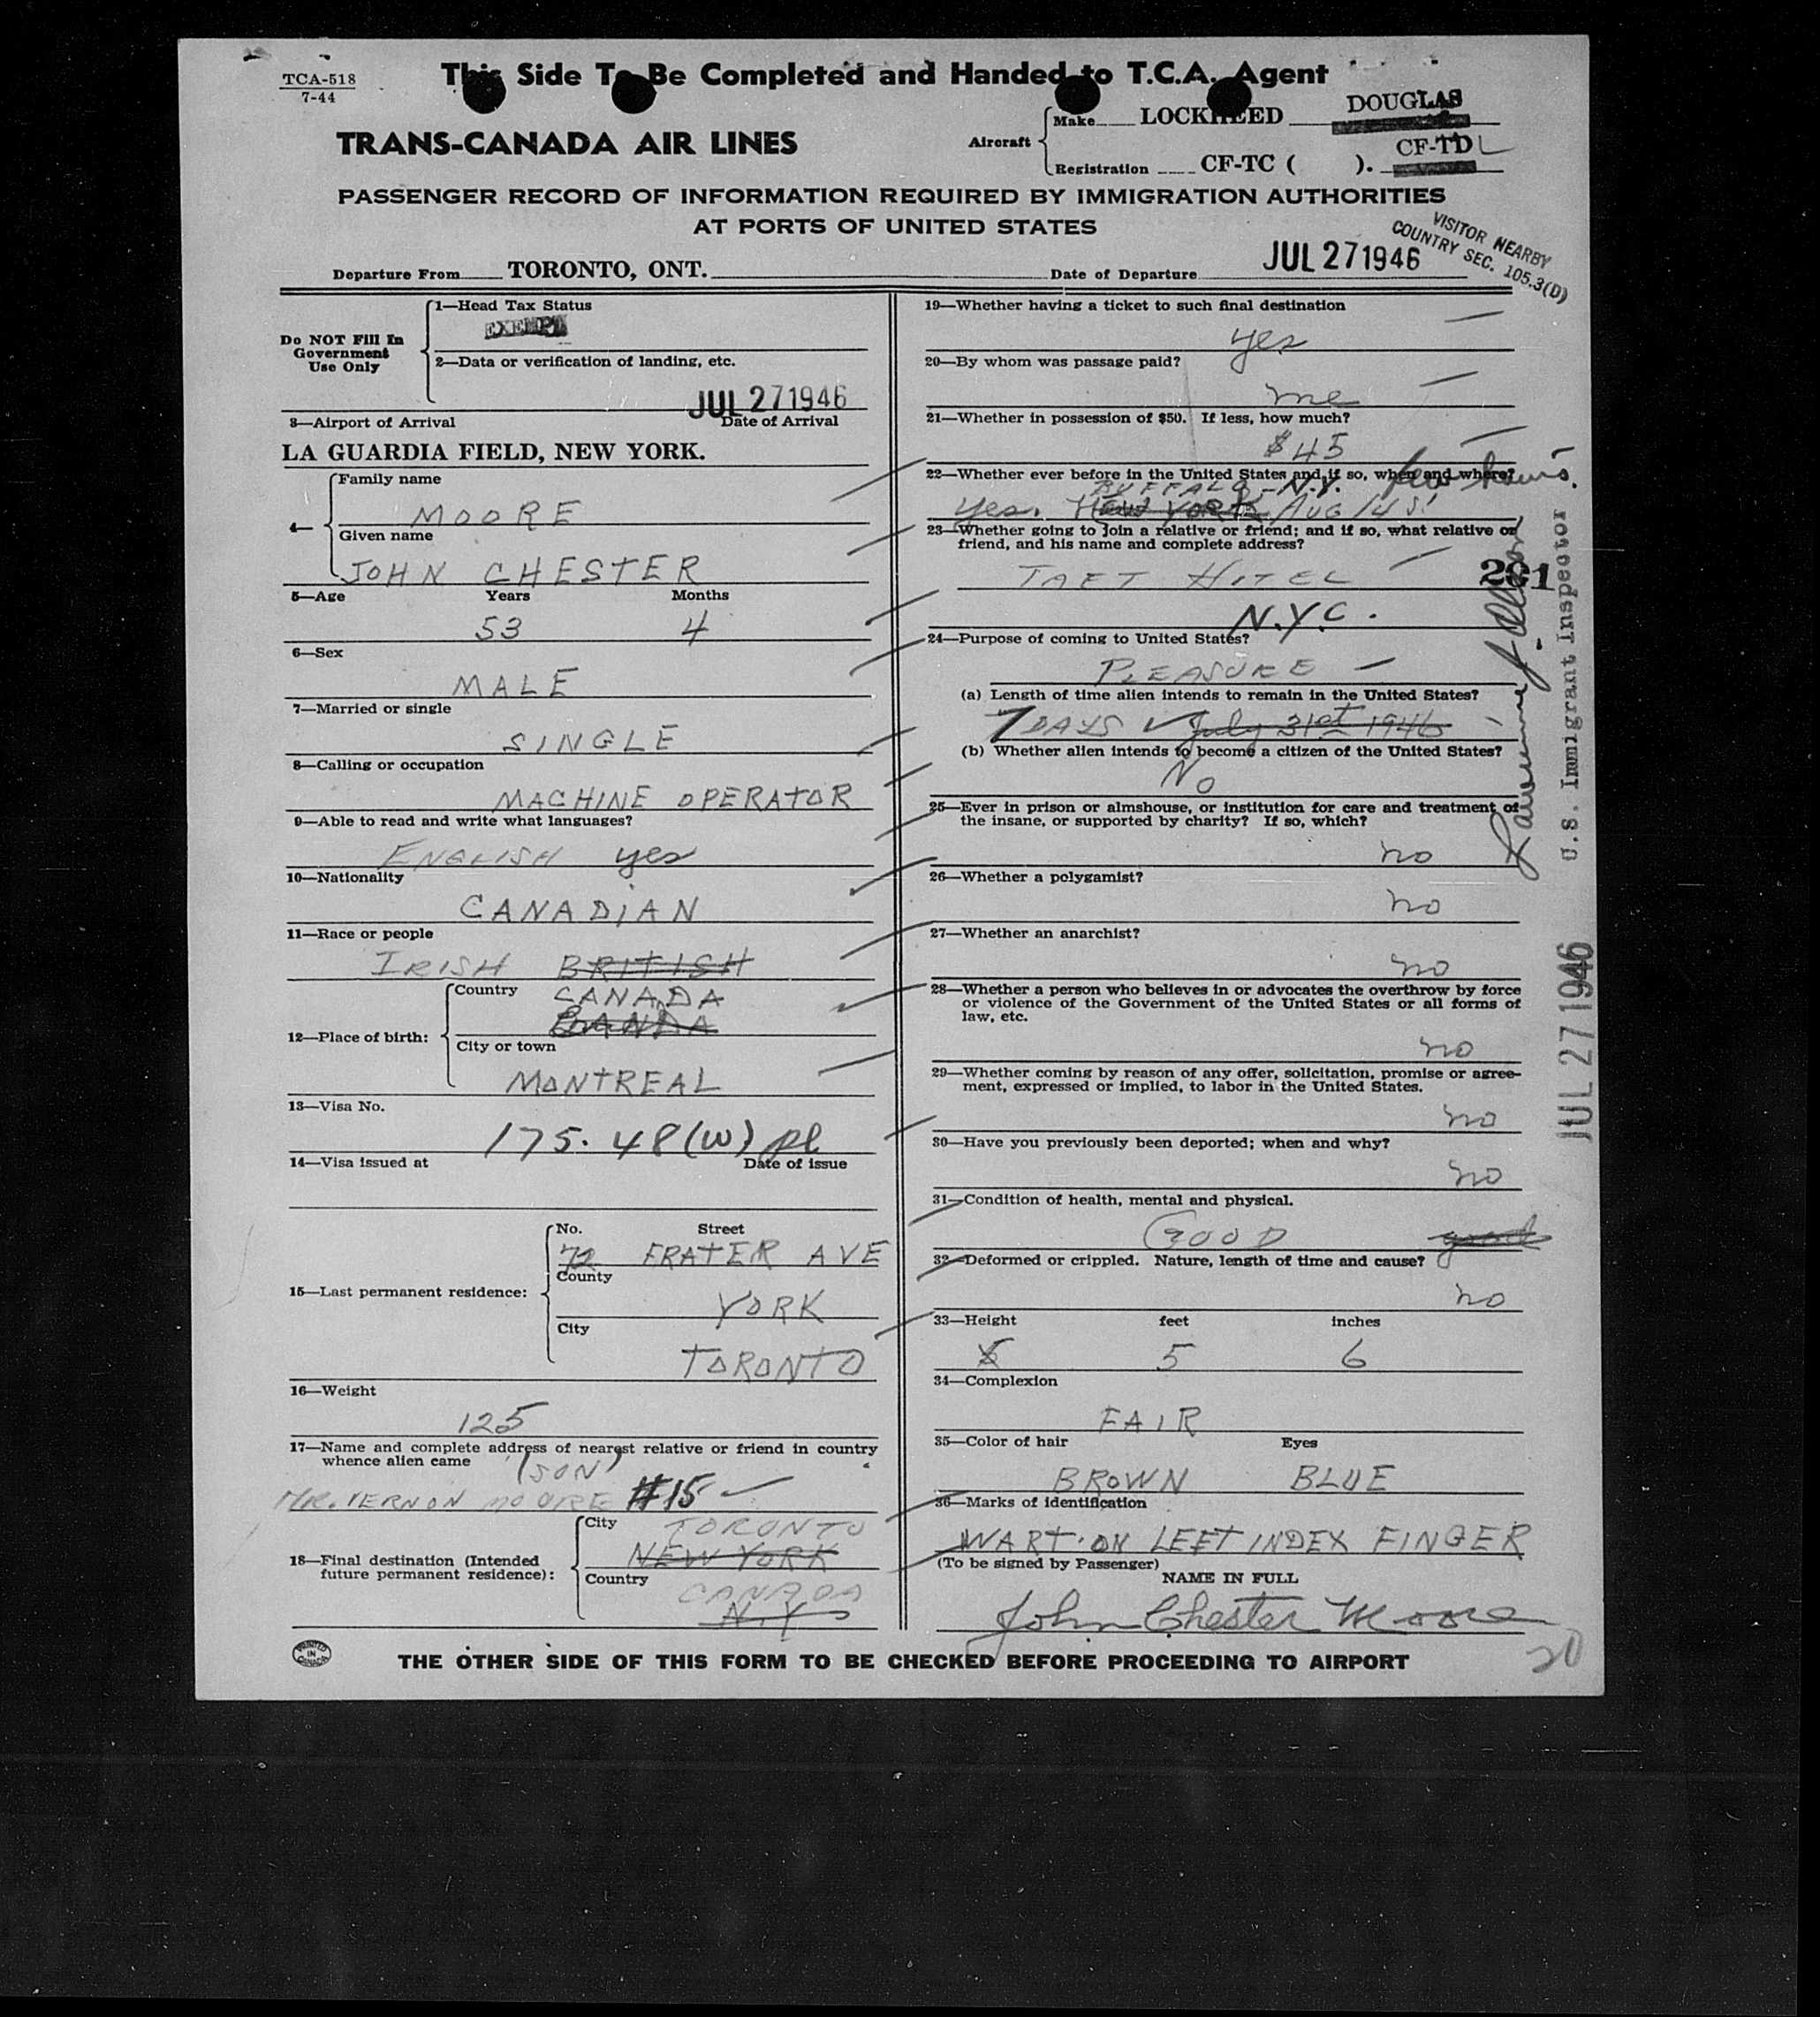 TCA-518
7-44
This Side To Be Completed and Handed to T.C.A. Agent
TRANS-CANADA AIR LINES
Aircraft
Make LOCKHEED DOUGLAS
Registration CF-TC ( ). CF-TDL
PASSENGER RECORD OF INFORMATION REQUIRED BY IMMIGRATION AUTHORITIES
AT PORTS OF UNITED STATES
VISITOR NEARBY
COUNTRY SEC. 105.3(D)
Departure From TORONTO, ONT. Date of Departure JUL 27 1946
Do NOT Fill In
Government
Use Only
1—Head Tax Status
EXEMPT
2—Data or verification of landing, etc.
JUL 27 1946
3—Airport of Arrival Date of Arrival
LA GUARDIA FIELD, NEW YORK.
4—
Family name
MOORE
Given name
JOHN CHESTER
5—Age Years Months
53 4
6—Sex
MALE
7—Married or single
SINGLE
8—Calling or occupation
MACHINE OPERATOR
9—Able to read and write what languages?
ENGLISH yes
10—Nationality
CANADIAN
11—Race or people
IRISH BRITISH
12—Place of birth:
Country CANADA
CANADA
City or town
MONTREAL
13—Visa No.
175.48(W) pl
14—Visa issued at Date of issue
15—Last permanent residence:
No. Street
72 FRATER AVE
County
YORK
City
TORONTO
16—Weight
125
17—Name and complete address of nearest relative or friend in country
whence alien came (SON)
MR. VERNON MOORE #15
18—Final destination (Intended
future permanent residence):
City TORONTO
NEW YORK
Country CANADA
N.Y
19—Whether having a ticket to such final destination
yes
20—By whom was passage paid?
me
21—Whether in possession of $50. If less, how much?
$45
22—Whether ever before in the United States and if so, when and where?
BUFFALO - N.Y. few hours.
yes. NEW YORK AUG 14
23—Whether going to join a relative or friend; and if so, what relative or
friend, and his name and complete address?
TAFT HOTEL
201
N.Y.C.
24—Purpose of coming to United States?
PLEASURE
(a) Length of time alien intends to remain in the United States?
7 DAYS July 31st 1946
(b) Whether alien intends to become a citizen of the United States?
No
25—Ever in prison or almshouse, or institution for care and treatment of
the insane, or supported by charity? If so, which?
no
26—Whether a polygamist?
no
27—Whether an anarchist?
no
28—Whether a person who believes in or advocates the overthrow by force
or violence of the Government of the United States or all forms of
law, etc.
no
29—Whether coming by reason of any offer, solicitation, promise or agree-
ment, expressed or implied, to labor in the United States.
no
30—Have you previously been deported; when and why?
no
31—Condition of health, mental and physical.
GOOD good
32—Deformed or crippled. Nature, length of time and cause?
no
33—Height feet inches
5 5 6
34—Complexion
FAIR
35—Color of hair Eyes
BROWN BLUE
36—Marks of identification
WART ON LEFT INDEX FINGER
(To be signed by Passenger)
NAME IN FULL
John Chester Moore
20
U.S. Immigrant Inspector
JUL 27 1946
PRINTED
IN
CANADA
THE OTHER SIDE OF THIS FORM TO BE CHECKED BEFORE PROCEEDING TO AIRPORT